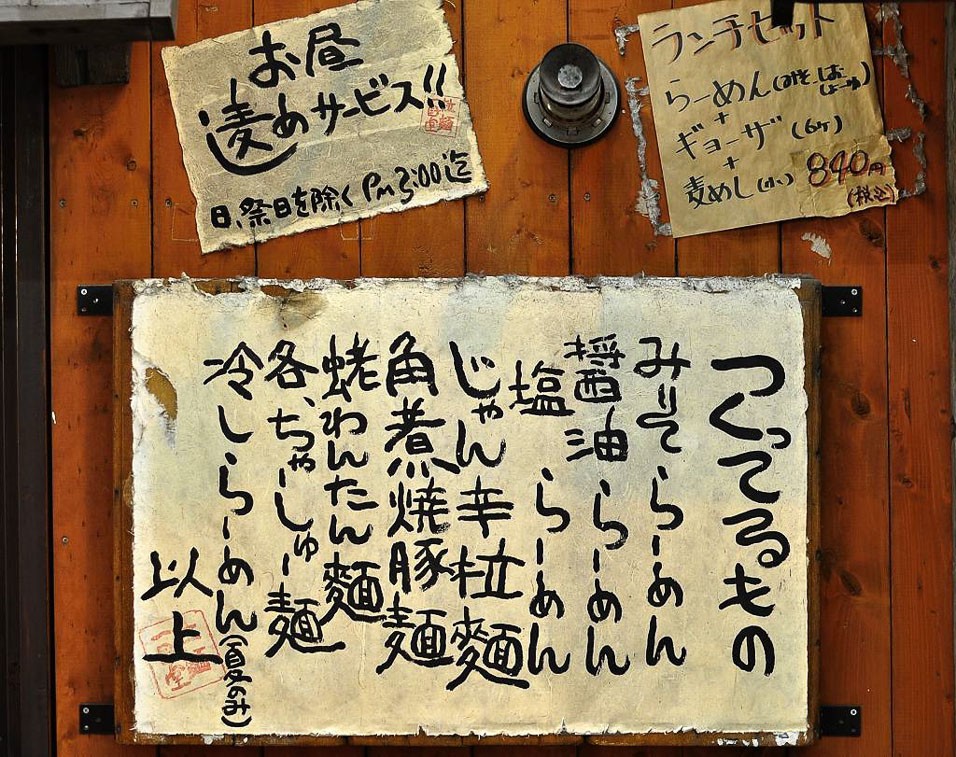 お昼
麦めしサービス!!
日、祭日を除くPM3:00迄
ランチセット
らーめん(みそ、しお
しょーゆ)
+
ギョーザ(6ケ)
+
麦めし(小) 840円
(税込)
つくってるもの
みそらーめん
醤油らーめん
塩らーめん
じゃん辛拉麺
角煮焼豚麺
蛯わんたん麺
各、ちゃーしゅー麺
冷しらーめん(夏のみ)
以上